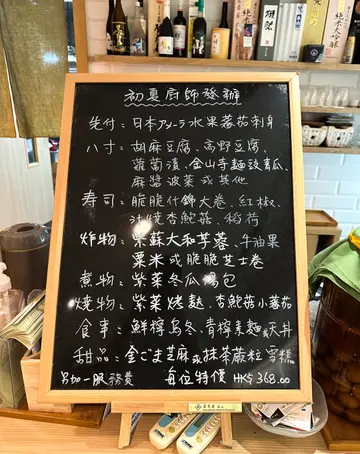 初夏廚師發辦
先付：日本アメーラ水果蕃茄刺身
八寸：胡麻豆腐、高野豆腐、
蘿蔔漬、金山寺麵豉青瓜、
麻醬菠菜或其他
寿司：脆脆什錦大卷、紅椒、
汁燒杏鮑菇、稻荷
炸物：紫蘇大和芋蓉、牛油果
粟米或脆脆芝士卷
煮物：紫菜冬瓜湯包
燒物：紫菜烤麩、杏鮑菇小蕃茄
食事：鮮檸烏冬、青檸素麵或天丼
甜品：金ごま芝麻或抹茶蕨粒雪糕
另加一服務費
每位特價 HK$368.00
純米大吟醸